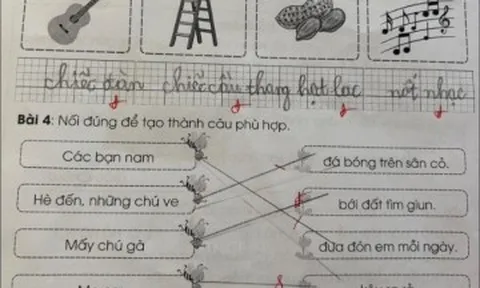 chiếc đàn chiếc cầu thang hạt lạc nốt nhạc
Bài 4: Nối đúng để tạo thành câu phù hợp.
Các bạn nam
đá bóng trên sân cỏ.
Hè đến, những chú ve
bới đất tìm giun.
Mấy chú gà
đưa đón em mỗi ngày.